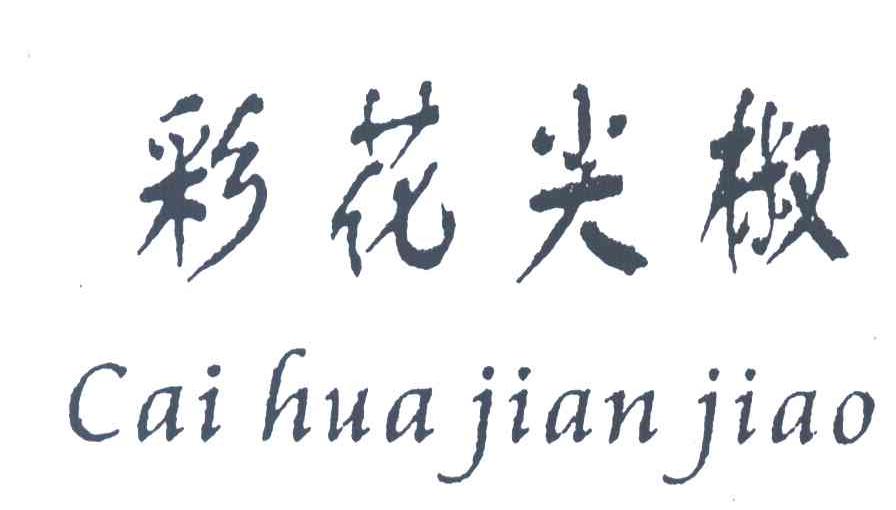 彩花尖椒
Cai hua jian jiao